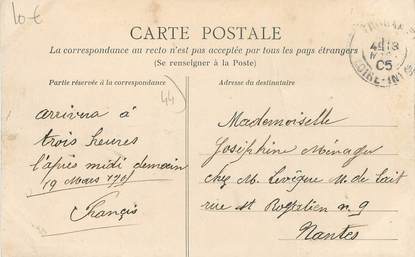 10€
CARTE POSTALE
La correspondance au recto n'est pas acceptée par tous les pays étrangers
(Se renseigner à la Poste)
Partie réservée à la correspondance
Adresse du destinataire
44
05
arrivera à
trois heures
l'après midi demain
19 Mars 1905
François
Mademoiselle
Joséphine Ménager
chez M. Levêque M. de lait
rue st Rogatien n 9
Nantes